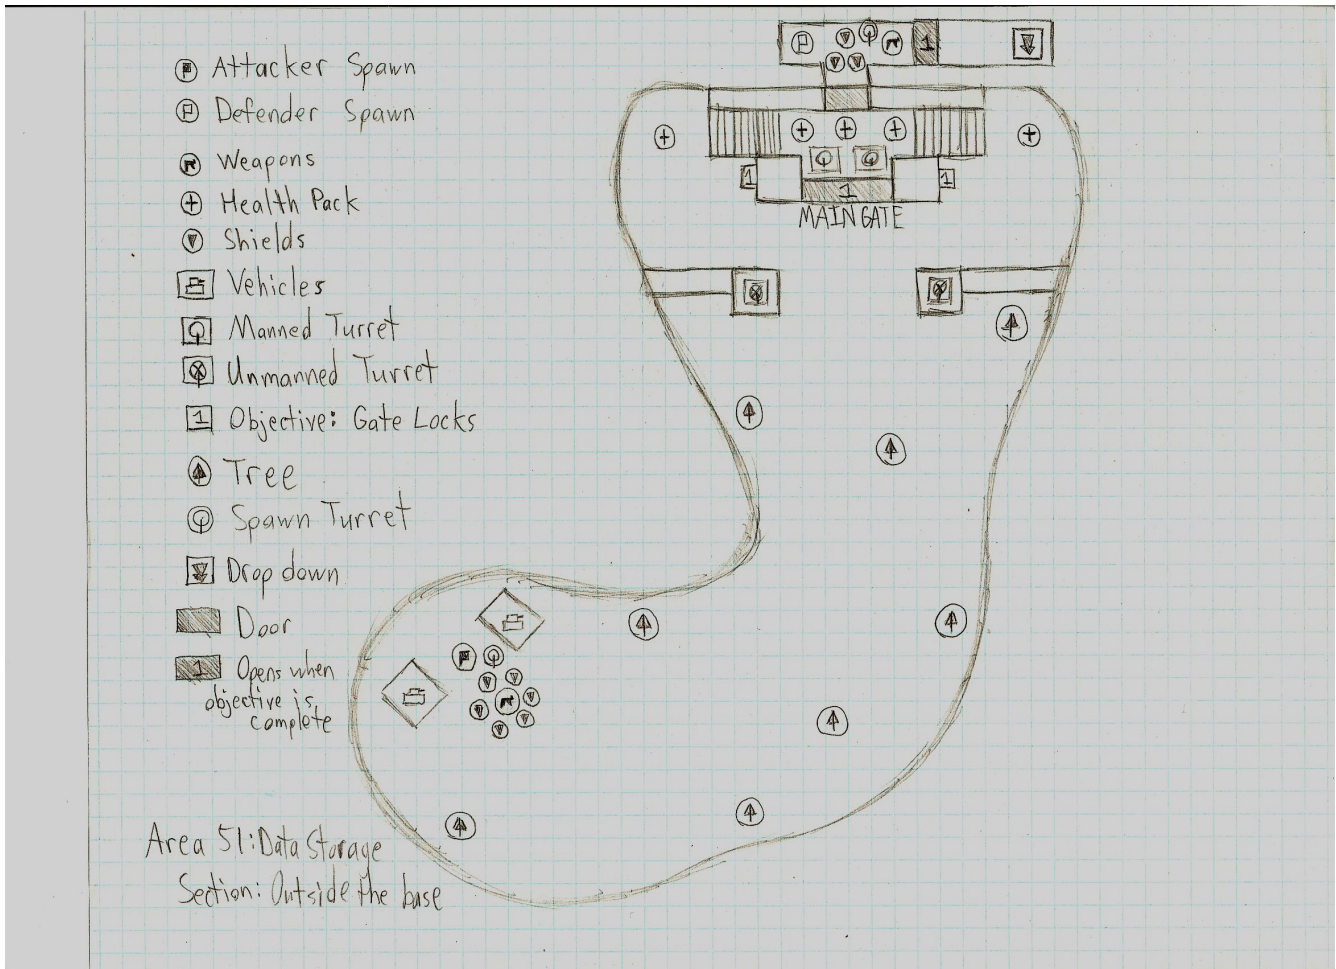 Attacker Spawn
Defender Spawn
Weapons
Health Pack
Shields
Vehicles
Manned Turret
Unmanned Turret
1 Objective: Gate Locks
Tree
Spawn Turret
Drop down
Door
1 Opens when
objective is
complete
Area 51: Data Storage
Section: Outside the base
1
1
1
1
MAIN GATE